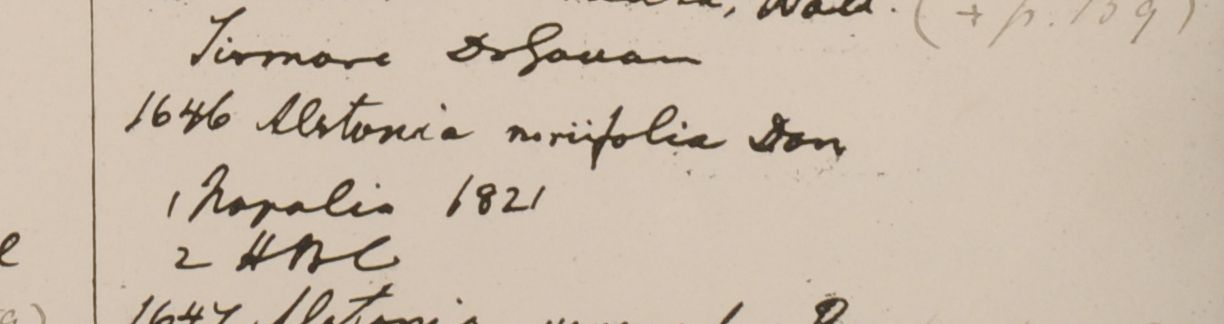 Wall. (+ p. 159)
Tirmore Dr Govan
1646 Alstonia neriifolia Don
1 Napalia 1821
2 HBC
1647 Alstonia